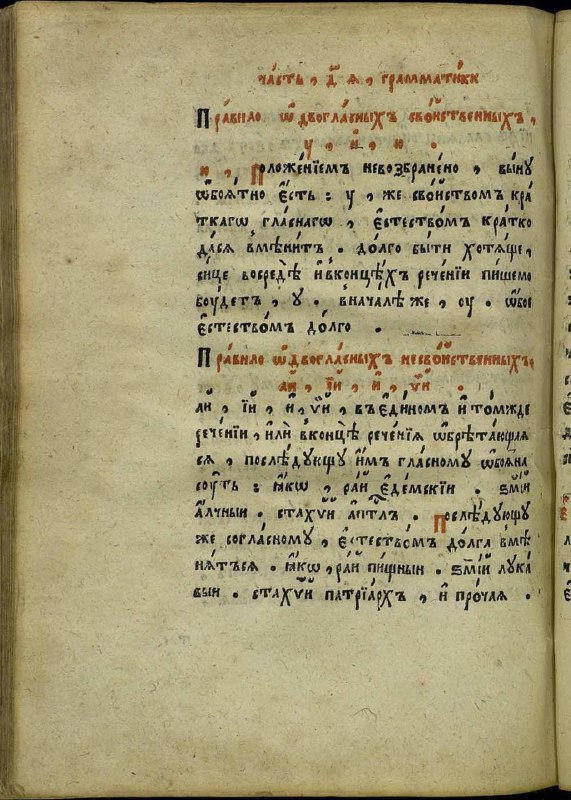 часть , д҃ ѧ , грамматі́ки
Пра́вило ѡ҆ двогла́сныхъ сво́йственныхъ ,
у , и҆ , ю .
и , Положе́нїемъ невозбране́но , вы́ну
ѡ҆боѧ́тно є҆́сть : у , же сво́йствомъ кра́
ткагѡ гла́снагѡ , є҆стество́мъ кратко
да́сѧ вмѣни́тъ . до́лго бы́ти хотѧ́ще ,
си́це восредѣ̀ и҆ вконцѣ́хъ рече́нїи пишемо
боу́детъ , у . внача́лѣ же , оу . ѡ҆бое
є҆стество́мъ до́лго .
Пра́вило ѡ҆ двогла́сныхъ несво́йственныхъ .
а҆й , їй , и҆ , ѵ҆й .
а҆й , їй , и҆ , ѵ҆й , въ є҆ди́номъ и҆ то́мжде
рече́нїи , и҆лѝ вконцѣ̀ рече́нїѧ ѡ҆брѣта́ющаѧ
сѧ , послѣ́дующу и҆̀мъ гла́сному ѡ҆боѧ́на
соу́ть : ꙗ҆́кѡ , ра́й є҆де́мскїи . ѕмі́й
а҆́лчныи . ста́хѵй а҆пⷭ҇тлъ . Послѣ́дующу
же согла́сному , є҆стество́мъ до́лга вмѣ
нѧ́тъсѧ . ꙗ҆́кѡ , ра́й пи́щныи . ѕмі́й лука́
выи . ста́хѵй патрїа́рхъ , и҆ про́чаѧ .